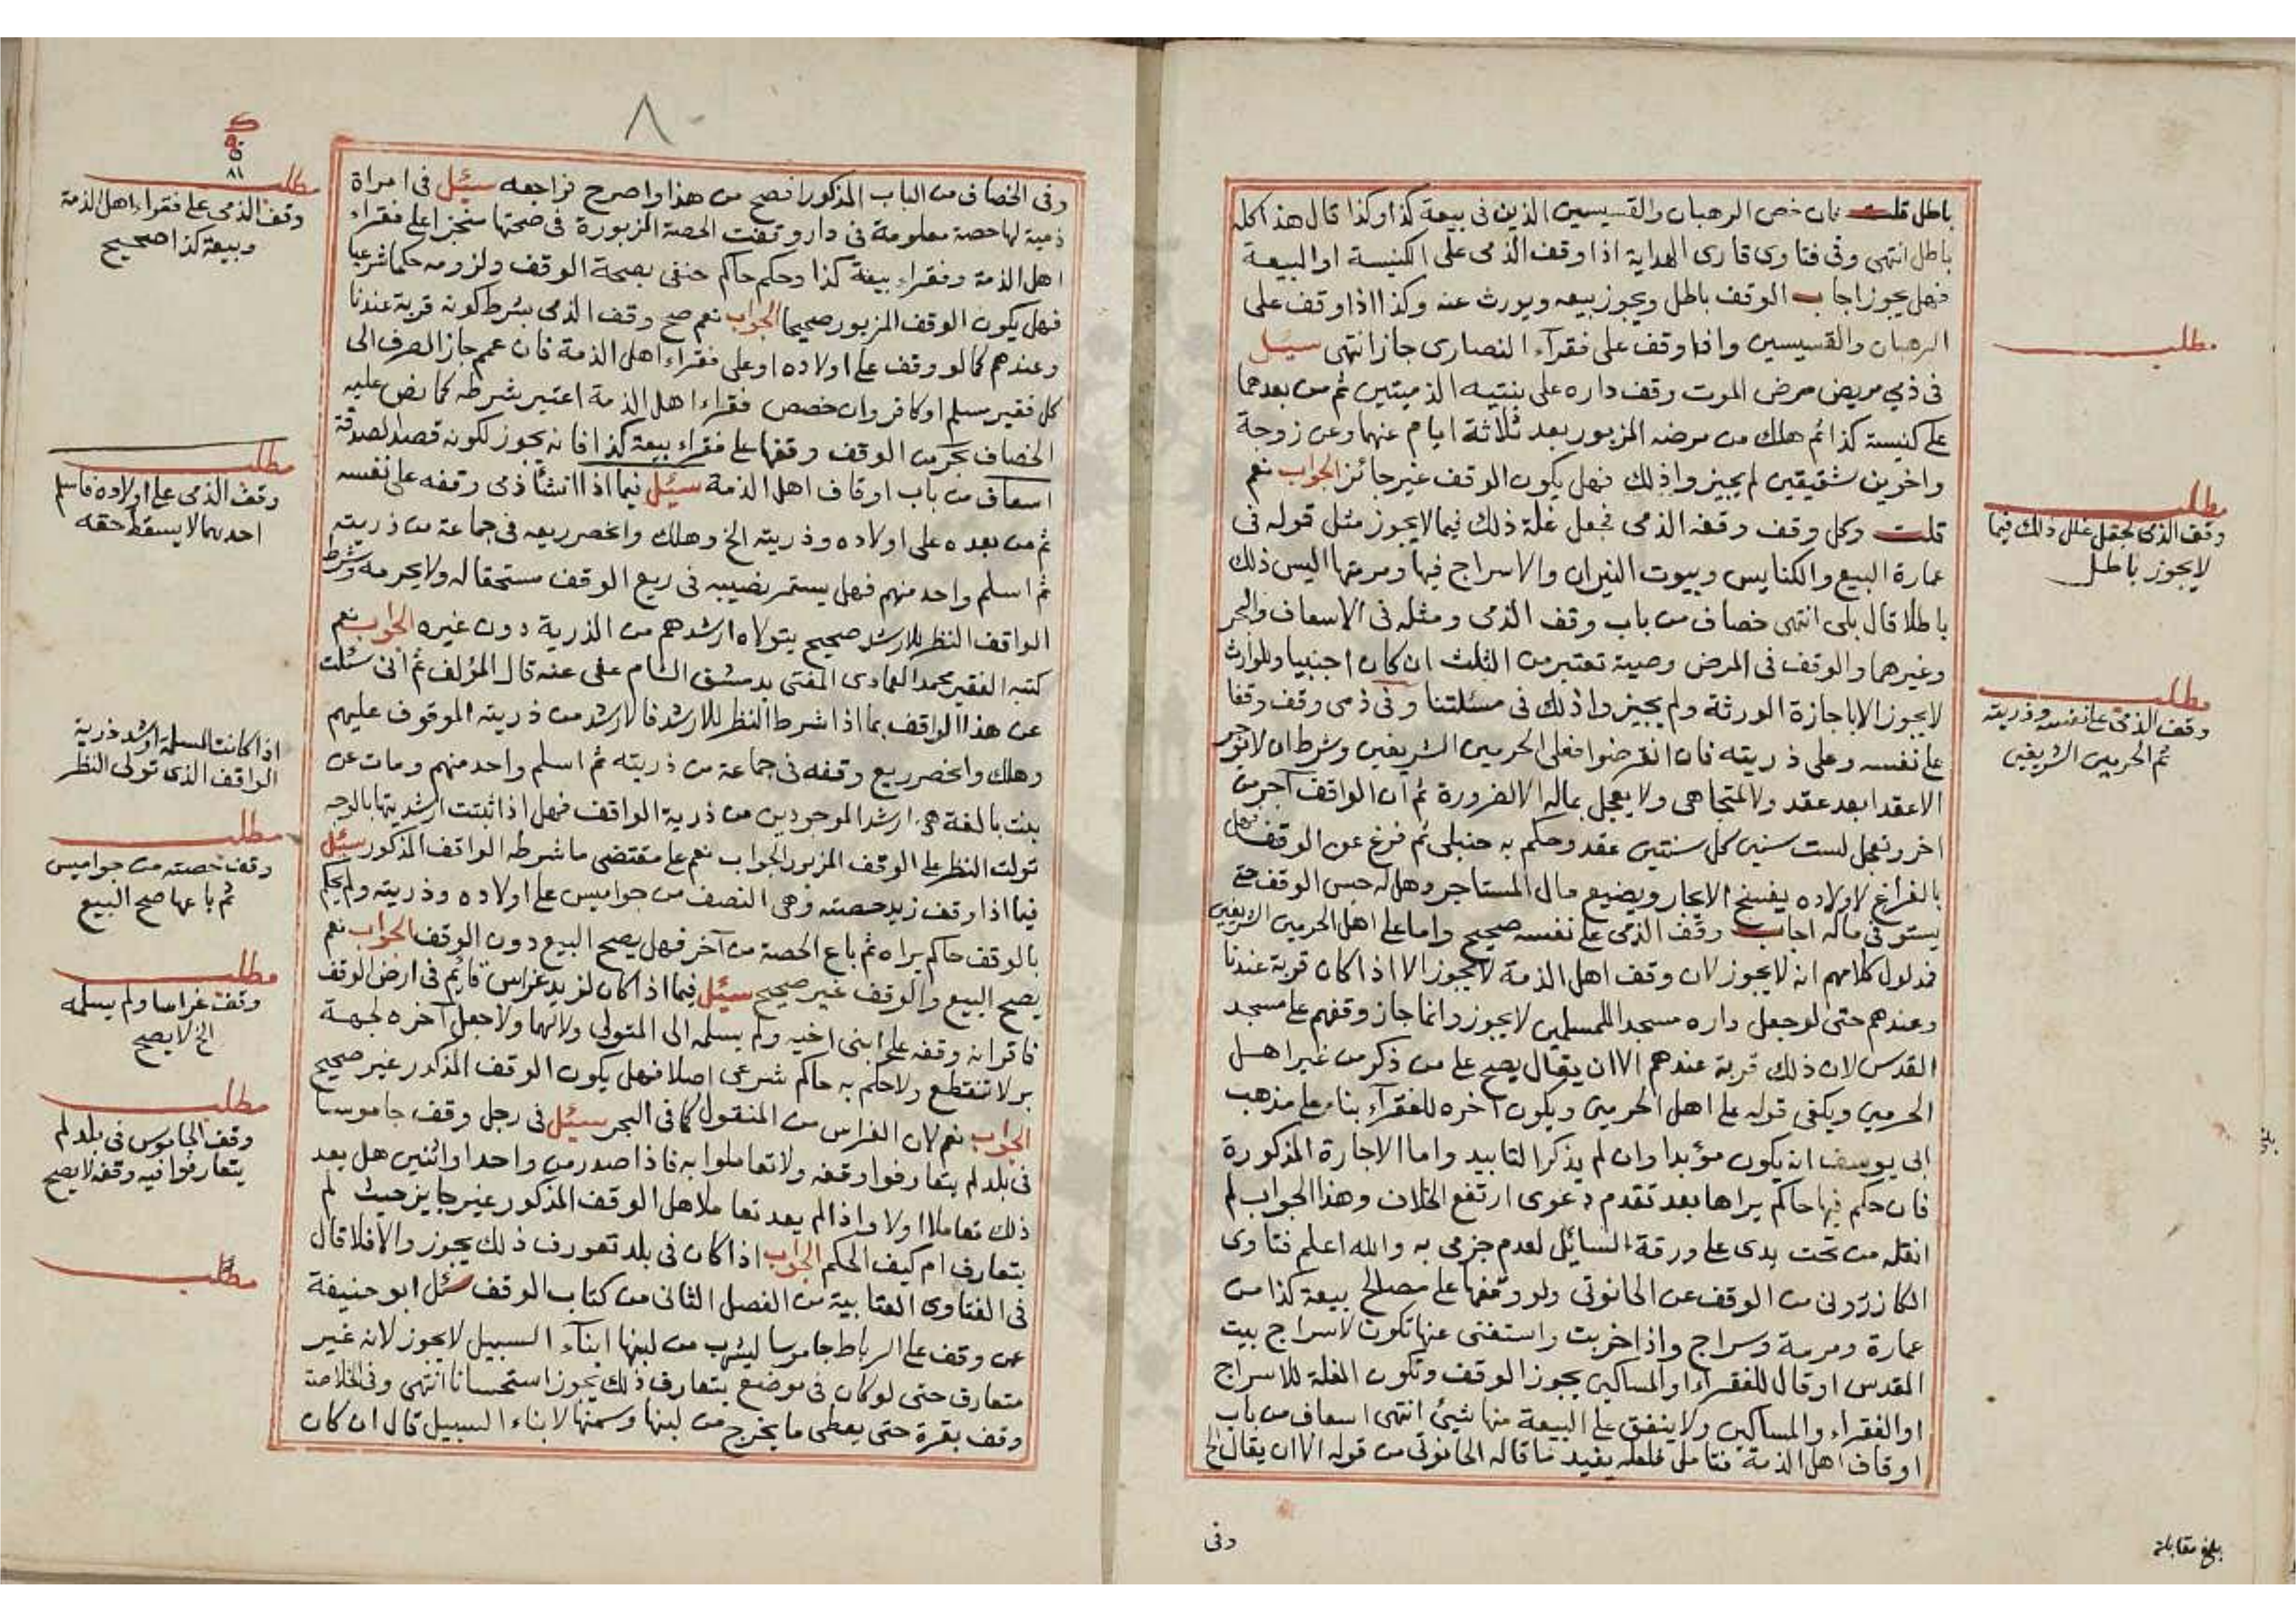 باطل قلت فان خص الرهبان والقسيسين الذين في بيعة كذا وكذا قال هذا كله
باطل انتهى وفي فتاوى قارى الهداية اذا وقف الذمى على الكنيسة او البيعة
فهل يجوز اجاب الوقف باطل ويجوز بيعه ويورث عنه وكذا اذا وقف على
الرهبان والقسيسين واذا وقف على فقرآء النصارى جاز انتهى سئل
في ذمي مريض مرض الموت وقف داره على بنتيه الذميتين ثم من بعدهما
على كنيسة كذا ثم هلك من مرضه المزبور بعد ثلاثة ايام عنهما وعن زوجة
واخوين شقيقين لم يجيزوا ذلك فهل يكون الوقف غير جائز الجواب نعم
قلت وكل وقف وقفه الذمى فجعل غلة ذلك فيما لا يجوز مثل قوله في
عمارة البيع والكنايس وبيوت النيران والاسراج فيها ومرمتها اليس ذلك
باطلا قال بلى انتهى خصاف من باب وقف الذمى ومثله في الاسعاف والبحر
وغيرهما والوقف في المرض وصية تعتبر من الثلث ان كان اجنبيا وللوارث
لا يجوز الا باجازة الورثة ولم يجيزوا ذلك في مسئلتنا وفي ذمى وقف وقفا
على نفسه وعلى ذريته فان انقرضوا فعلى الحرمين الشريفين وشرط ان لا يؤجر
الا عقدا بعد عقد ولا لمتجاهى ولا يعجل بماله الا لضرورة ثم ان الواقف آجر من
اخر وتعجل لست سنين كل سنتين عقد وحكم به حنبلى ثم فرغ عن الوقف فهل
بالفراغ لاولاده ينفسخ الايجار ويضيع مال المستاجر وهل له حبس الوقف حتى
يستوفى ماله اجاب وقف الذمى على نفسه صحيح واما على اهل الحرمين الشريفين
فمدلول كلامهم انه لا يجوز لان وقف اهل الذمة لا يجوز الا اذا كان قربة عندنا
وعندهم حتى لو جعل داره مسجدا للمسلمين لا يجوز وانما جاز وقفهم على مسجد
القدس لان ذلك قربة عندهم الا ان يقال يصح على من ذكر من غير اهل
الحرمين ويكفى قوله على اهل الحرمين ويكون آخره للفقرآء بناء على مذهب
ابى يوسف انه يكون مؤبدا وان لم يذكر التابيد واما الاجارة المذكورة
فان حكم فيها حاكم يراها بعد تقدم دعوى ارتفع الخلاف وهذا الجواب لم
انقله من تحت يدى على ورقة السائل لعدم جزمى به والله اعلم فتاوى
الكازرونى من الوقف عن الحانوتى ولو وقفها على مصالح بيعة كذا من
عمارة ومرمة وسراج واذا خربت واستغنى عنها تكون لاسراج بيت
المقدس او قال للفقراء او المساكين يجوز الوقف وتكون الغلة للاسراج
او الفقراء والمساكين ولا ينفق على البيعة منها شيئ انتهى اسعاف من باب
اوقاف اهل الذمة فتامل فلعله يفيد ما قاله الحانوتى من قوله الا ان يقال الخ
وفى
مطلب
مطلب
وقف الذمى يجعل غلل ذلك فيما
لا يجوز باطل
مطلب
وقف الذمى على نفسه وذريته
ثم الحرمين الشريفين
بلغ مقابلة
٨٠
وفى الخصاف من الباب المذكور افصح من هذا واصرح فراجعه سئل في امراة
ذمية لها حصة معلومة في دار وقفت الحصة المزبورة في صحتها منجزا على فقراء
اهل الذمة وفقراء بيعة كذا وحكم حاكم حنفى بصحة الوقف ولزومه حكما شرعيا
فهل يكون الوقف المزبور صحيحا الجواب نعم صح وقف الذمى بشرط كونه قربة عندنا
وعندهم كما لو وقف على اولاده او على فقراء اهل الذمة فان عمم جاز الصرف الى
كل فقير مسلم او كافر وان خصص فقراء اهل الذمة اعتبر شرطه كما نص عليه
الخصاف بحر من الوقف وقفها على فقراء بيعة كذا فانه يجوز لكونه قصد الصدقة
اسعاف من باب اوقاف اهل الذمة سئل فيما اذا انشأ ذمى وقفه على نفسه
ثم من بعده على اولاده وذريته الخ وهلك وانحصر ريعه في جماعة من ذريته
ثم اسلم واحد منهم فهل يستمر نصيبه في ريع الوقف مستحقا له ولا يحرمه وشرط
الواقف النظر للارشد صحيح يتولاه ارشدهم من الذرية دون غيره الجواب نعم
كتبه الفقير محمد العمادى المفتى بدمشق الشام عفى عنه قال المؤلف ثم انى سئلت
عن هذا الواقف بما اذا شرط النظر للارشد فالارشد من ذريته الموقوف عليهم
وهلك وانحصر ريع وقفه في جماعة من ذريته ثم اسلم واحد منهم ومات عن
بنت بالغة هى ارشد الموجودين من ذرية الواقف فهل اذا ثبتت ارشديتها بالوجه
تولت النظر على الوقف المزبور الجواب نعم على مقتضى ما شرطه الواقف المذكور سئل
فيما اذا وقف زيد حصته وهى النصف من جواميس على اولاده وذريته ولم يحكم
بالوقف حاكم يراه ثم باع الحصة من آخر فهل يصح البيع دون الوقف الجواب نعم
يصح البيع والوقف غير صحيح سئل فيما اذا كان لزيد غراس قائم في ارض الوقف
فاقر انه وقفه على ابنى اخيه ولم يسلمه الى المتولى ولا لهما ولا جعل آخره لجهة
بر لا تنقطع ولا حكم به حاكم شرعى اصلا فهل يكون الوقف المذكور غير صحيح
الجواب نعم لان الغراس من المنقول كما في البحر سئل في رجل وقف جاموسا
في بلد لم يتعارفوا وقفه ولا تعاملوا به فاذا صدر من واحد او اثنين هل يعد
ذلك تعاملا اولا واذا لم يعد تعاملا هل الوقف المذكور غير جايز حيث لم
يتعارف ام كيف الحكم الجواب اذا كان في بلد تعورف ذلك يجوز والا فلا قال
في الفتاوى العتابية من الفصل الثانى من كتاب الوقف سئل ابو حنيفة
عمن وقف على الرباط جاموسا ليشرب من لبنها ابنآء السبيل لا يجوز لانه غير
متعارف حتى لو كان في موضع يتعارف ذلك يجوز استحسانا انتهى وفى الخلاصة
وقف بقرة حتى يعطى ما يخرج من لبنها وسمنها لابناء السبيل قال ان كان
٨١
مطلب
وقف الذمى على فقراء اهل الذمة
وبيعة كذا صحيح
مطلب
وقف الذمى على اولاده فاسلم
احدهما لا يسقط حقه
اذا كانت المسلمة ارشد ذرية
الواقف الذى تولى النظر
مطلب
وقف حصته من جواميس
ثم باعها صح البيع
مطلب
وقف غراسا ولم يسلمه
الخ لا يصح
مطلب
وقف الجاموس في بلد لم
يتعارفوا فيه وقفه لا يصح
مطلب